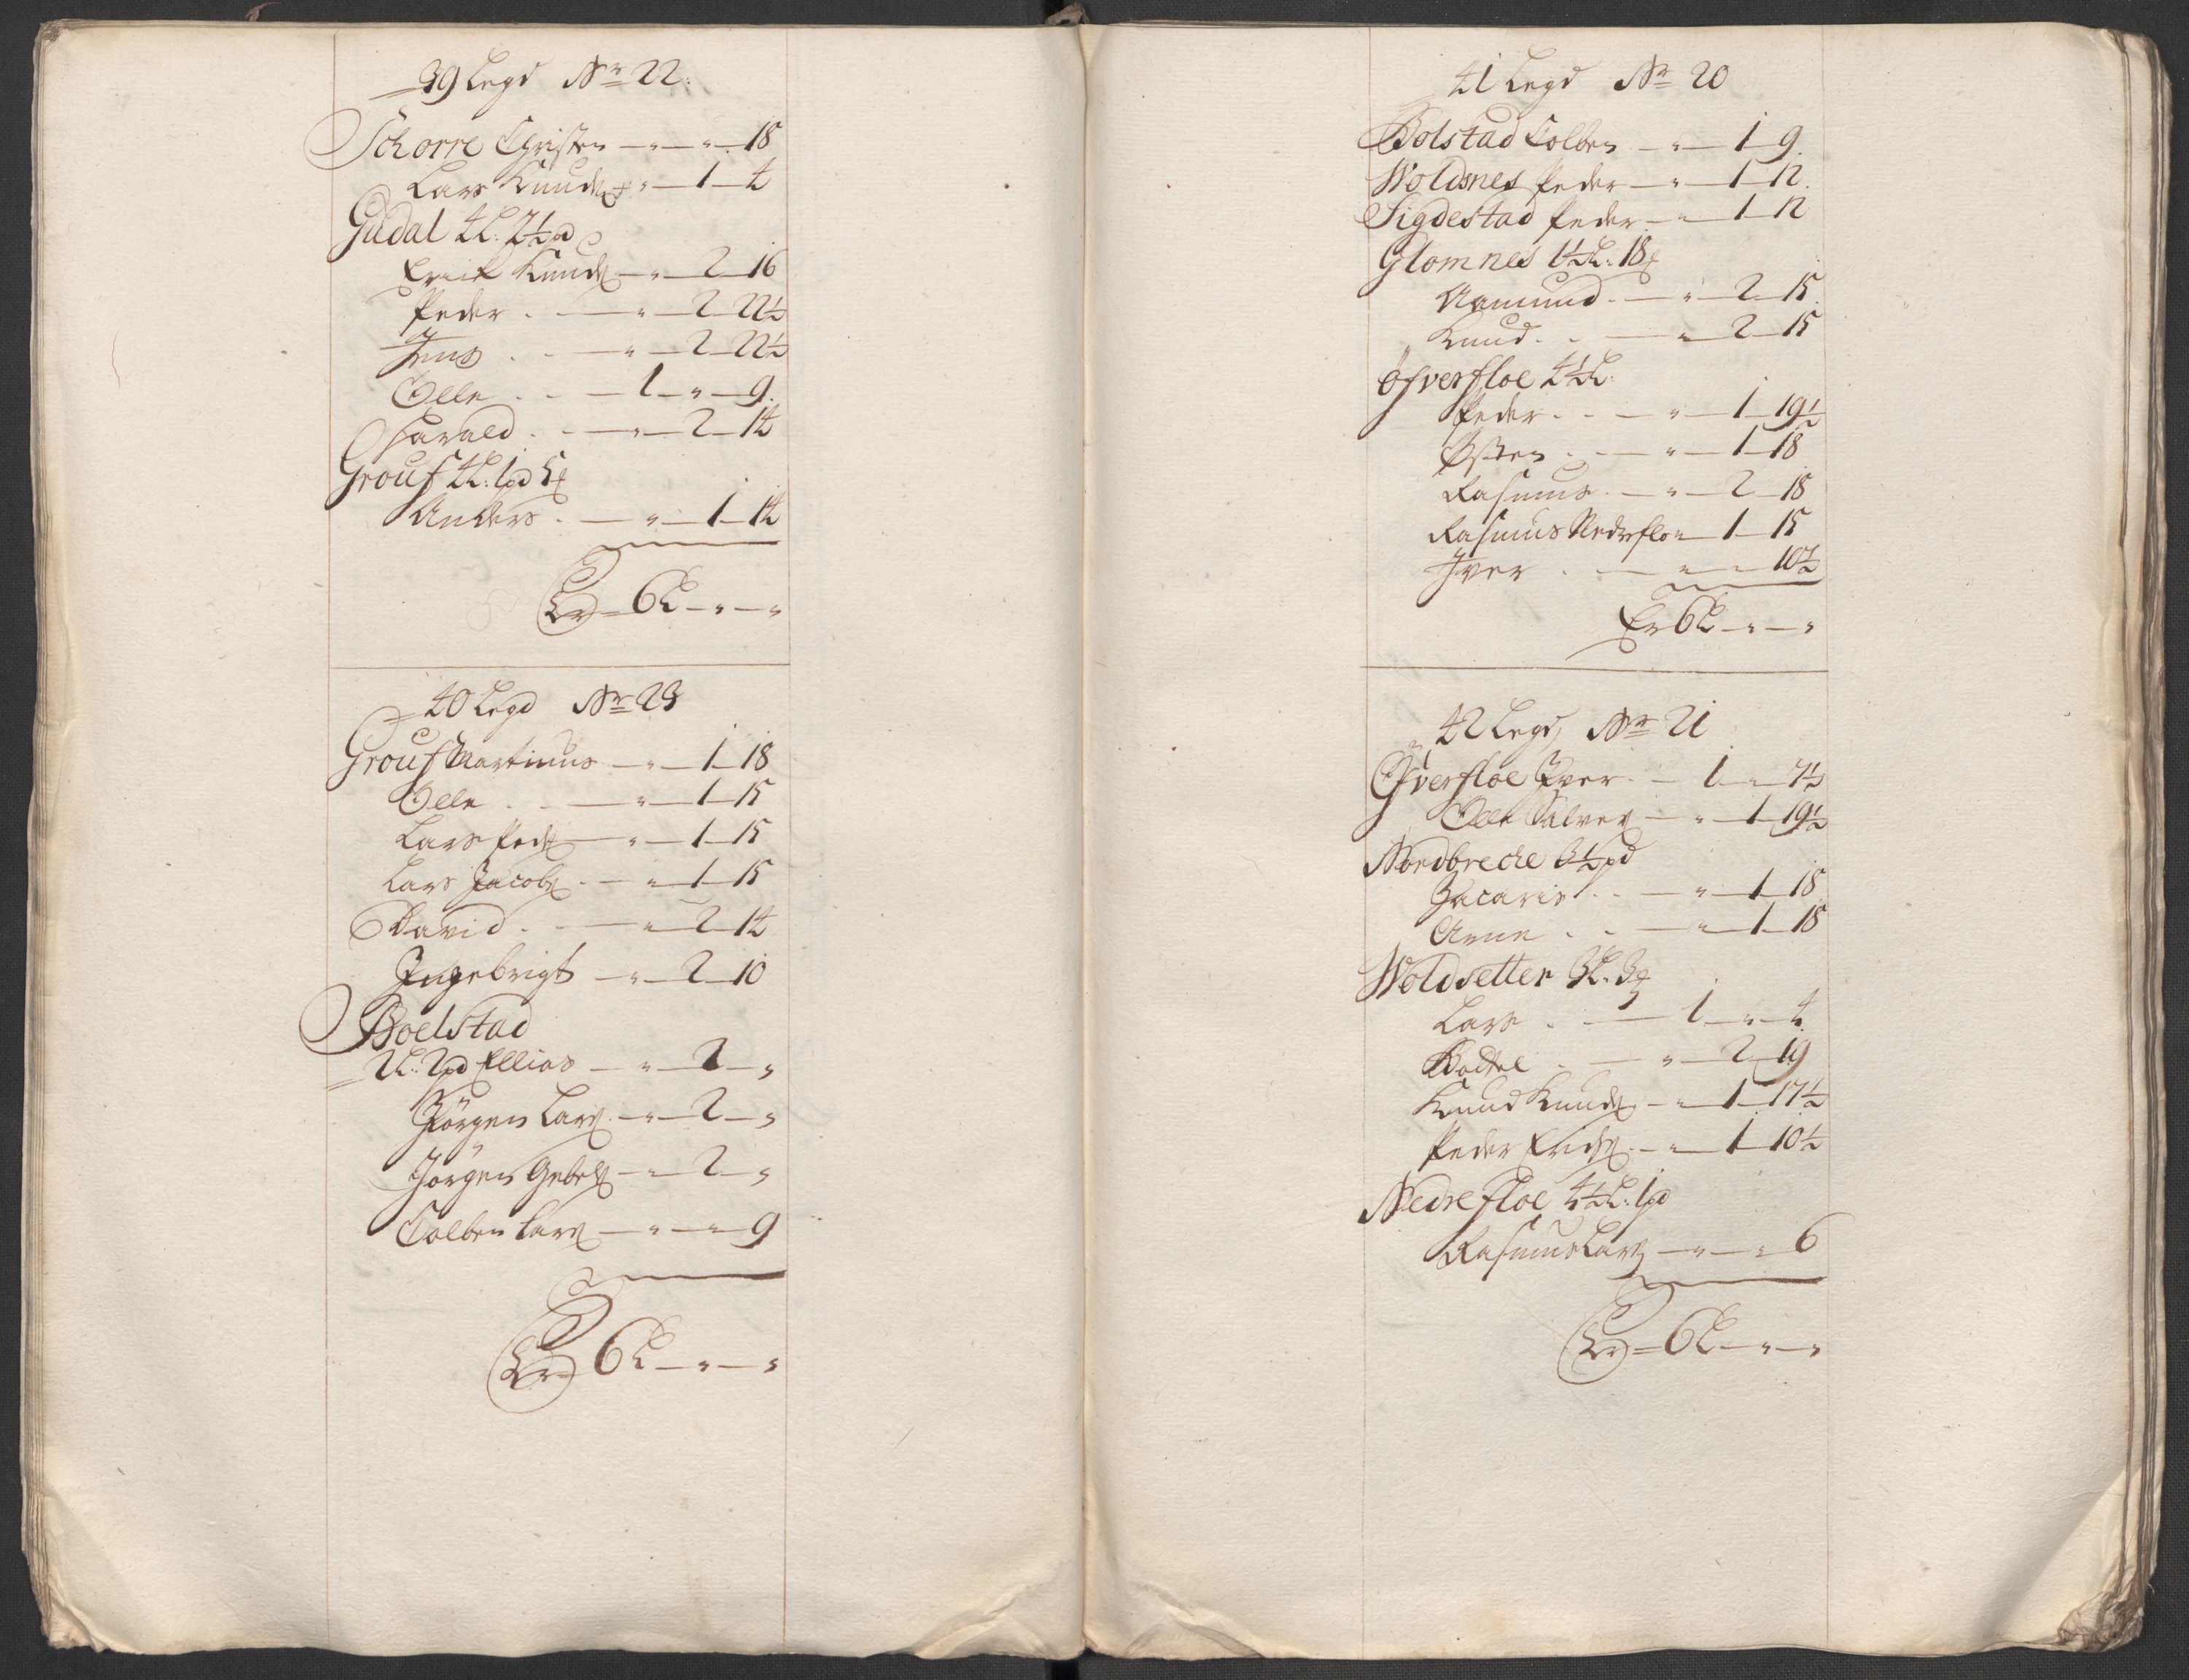 39 Legd Nr 22:
Schorre Christen — " — " — 18
Lars Knuds: — " — 1 — 4
Gudal 4 L: 2½ pd
Erick Knuds: — " — 2 — 16
Peder . — " — 2 — 22½
Jens . . — " — 2 — 22½
Olle . . — 1 — " — 9.
Harald . . — " — 2 — 14
Grouf 4 L: 1 pd 5 ℔
Anders . — " — 1 — 14
Er = 6 L — " — "
40 Legd Nr 23
Grouf Martinus — " — 1 — 18
Olle . . — " — 1 — 15
Lars Peds: — " — 1 — 15
Lars Jacobs: . — " — 1 — 15
David . . — " — 2 — 14
Ingebrigt — " — 2 — 10
Boelstad
2 L: 2 pd Ellias — " — 2 — "
Jörgen Lars: — " — 2 — "
Jörgen Gabels: — " — 2 — "
Colben Lars: — " — " — 9
Er = 6 L — " — "
41 Legd Nr 20
Bolstad Colben — " — 1 — 9.
Woldsnes Peder — " — 1 — 12.
Sigdestad Peder — " — 1 — 12
Glomnes 1½ L: 18 ℔
Aamund . — " — 2 — 15.
Knud . . — " — 2 — 15
Öfverfloe 4½ L:
Peder . . — " — 1 — 19½
Østen . — " — 1 — 18
Rasmus . — " — 2 — 18
Rasmus Nedrefloe — 1 — 15
Iver . — " — " — 10½
Er 6 L — " — "
42 Legd, Nr 21
Öfverfloe Iver . — 1 — " — 7½
Olle Salves: — " — 1 — 19½
Nordbreche 3½ pd
Zacaris . . — " — 1 — 18
Arne . . — " — 1 — 18
Woldsetter 3 L: 3 ℔
Lars . — 1 — " — 4.
Bottel . — " — 2 — 19
Knud Knuds: — " — 1 — 17½
Peder Erichs: — " — 1 — 10½
Nedrefloe 4½ L: 1 pd
Rasmus Lars: — " — " — 6
Er = 6 L — " — "